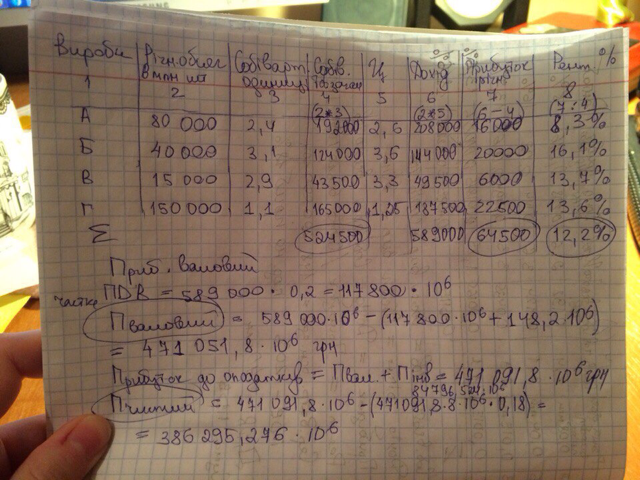 Вироби | Річн обсяг в млн шт | Собіварт одиниці | Собів. загальна | Ц | Дохід | Прибуток річн | Рент. %
1 | 2 | 3 | 4 (2*3) | 5 | 6 (2*5) | 7 (6-4) | 8 (7:4)
А | 80 000 | 2,4 | 192000 | 2,6 | 208000 | 16000 | 8,3%
Б | 40 000 | 3,1 | 124000 | 3,6 | 144000 | 20000 | 16,1%
В | 15 000 | 2,9 | 43500 | 3,3 | 49500 | 6000 | 13,7%
Г | 150 000 | 1,1 | 165000 | 1,25 | 187500 | 22500 | 13,6%
Σ | 524500 | 589000 | 64500 | 12,2%
Приб. валовий
частка ПДВ = 589 000 · 0,2 = 117 800 · 10⁶
Пваловий = 589 000·10⁶ - (117 800·10⁶ + 148,2·10⁶)
= 471 051,8·10⁶ грн
Прибуток до оподатков = Пвал. + Пінв = 471 091,8·10⁶ грн
84796,524·10⁶
Пчистий = 471 091,8·10⁶ - (471091,8·10⁶·0,18) =
= 386 295,276 · 10⁶